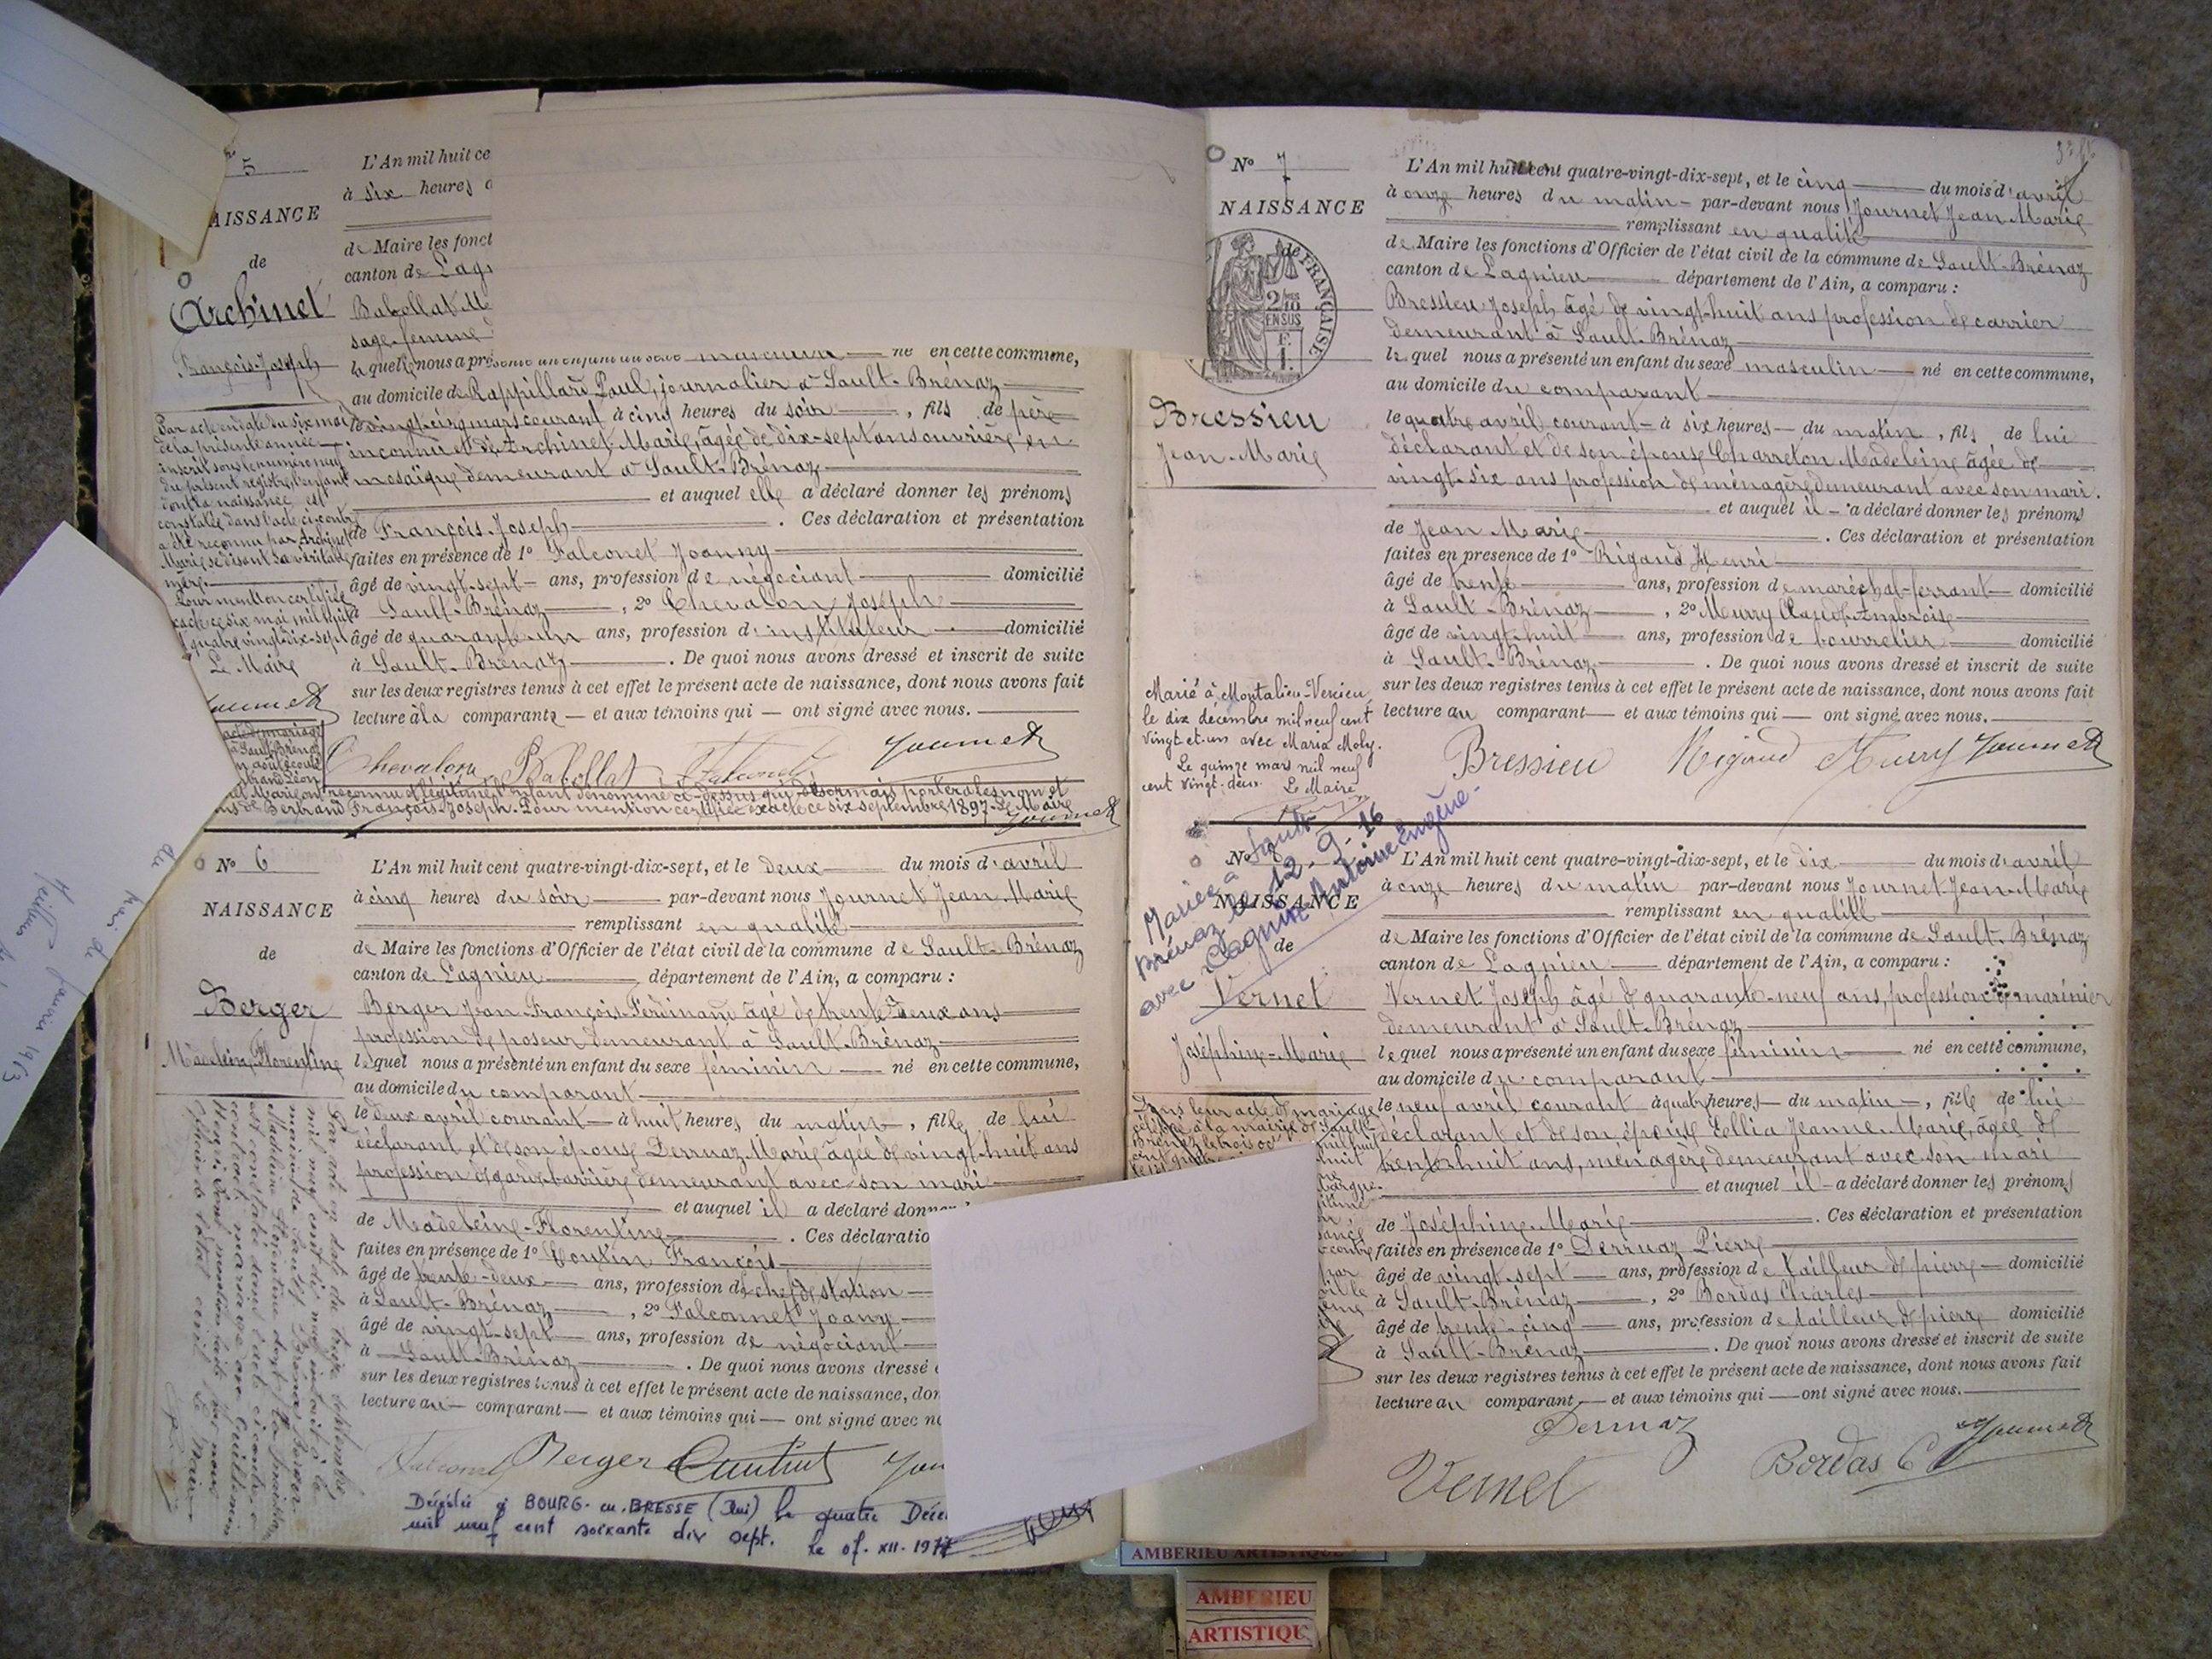 5
L'An mil huit ce
à six heures d
AISSANCE
de
de Maire les fonct
canton de Lagn
Archinet
Babollat Ma
sage-femme
François-Joseph
né en cette commune,
au domicile de Rappillard Paul, journalier à Sault-Brénaz
le vingt-cinq mars courant à cinq heures du soir, fils de père
inconnu et de Archinet Marie, âgée de dix-sept ans ouvrière en
mosaïque demeurant à Sault-Brénaz
et auquel elle a déclaré donner les prénoms
de François-Joseph. Ces déclaration et présentation
faites en présence de 1º Falconet Joanny
âgé de vingt-sept ans, profession de négociant domicilié
à Sault-Brénaz, 2º Chevalon Joseph
âgé de quarante un ans, profession d'instituteur domicilié
à Sault-Brénaz. De quoi nous avons dressé et inscrit de suite
sur les deux registres tenus à cet effet le présent acte de naissance, dont nous avons fait
lecture à la comparante et aux témoins qui ont signé avec nous.
Par acte en date du six mai
de la présente année
inscrit sous le numéro neuf
du présent registre, l'enfant
dont la naissance est
constatée dans l'acte ci-contre
a été reconnu par Archinet
Marie se disant sa véritable
mère.
Pour mention certifiée
exacte ce six mai mil huit
quatre vingt-dix-sept
Le Maire
Journet
Chevalon Babollat Falconet Journet
reconnu et légitimé l'enfant dénommé ci-dessus qui désormais portera les nom et
de Bertrand François-Joseph. Pour mention certifiée exacte ce six septembre 1897. Le Maire
Journet
Nº 6
NAISSANCE
de
Berger
Madeleine-Florentine
L'An mil huit cent quatre-vingt-dix-sept, et le deux du mois d'avril
à cinq heures du soir par-devant nous Journet Jean-Marie
remplissant en qualité
de Maire les fonctions d'Officier de l'état civil de la commune de Sault-Brénaz
canton de Lagnieu, département de l'Ain, a comparu :
Berger Jean-François-Ferdinand âgé de trente-deux ans
profession de poseur demeurant à Sault-Brénaz
lequel nous a présenté un enfant du sexe féminin né en cette commune,
au domicile du comparant
le deux avril courant à huit heures du matin, fille de lui
déclarant et de son épouse Derruaz Marie âgée de vingt-huit ans
profession de garde-barrière demeurant avec son mari
et auquel il a déclaré donner
de Madeleine-Florentine. Ces déclaratio
faites en présence de 1º Coutin François
âgé de trente-deux ans, profession de chef de station
à Sault-Brénaz, 2º Falconnet Joany
âgé de vingt-sept ans, profession de négociant
à Sault-Brénaz. De quoi nous avons dressé e
sur les deux registres tenus à cet effet le présent acte de naissance, don
lecture au comparant et aux témoins qui ont signé avec no
Berger
Décédée à BOURG-en-BRESSE (Ain) le quatre Déce
mil neuf cent soixante dix sept. le 07-XII-1977
Nº 7
NAISSANCE
de
FRANÇAISE
2/10
EN SUS
F.
1.
Bressieu
Jean-Marie
L'An mil huit cent quatre-vingt-dix-sept, et le cinq du mois d'avril
à onze heures du matin par-devant nous Journet Jean Marie
remplissant en qualité
de Maire les fonctions d'Officier de l'état civil de la commune de Sault-Brénaz
canton de Lagnieu département de l'Ain, a comparu :
Bressieu Joseph, âgé de vingt-huit ans profession de carrier
demeurant à Sault-Brénaz
lequel nous a présenté un enfant du sexe masculin né en cette commune,
au domicile du comparant
le quatre avril courant à six heures du matin, fils de lui
déclarant et de son épouse Charreton Madeleine âgée de
vingt-six ans profession de ménagère demeurant avec son mari.
et auquel il a déclaré donner les prénoms
de Jean Marie. Ces déclaration et présentation
faites en présence de 1º Rigaud Henri
âgé de trente ans, profession de maréchal-ferrant domicilié
à Sault-Brénaz, 2º Murry Claude-Ambroise
âgé de vingt-huit ans, profession de bourrelier domicilié
à Sault-Brénaz. De quoi nous avons dressé et inscrit de suite
sur les deux registres tenus à cet effet le présent acte de naissance, dont nous avons fait
lecture au comparant et aux témoins qui ont signé avec nous.
Marié à Montalieu-Vercieu
le dix décembre mil neuf cent
vingt-et-un avec Maria Moly.
Le quinze mars mil neuf
cent vingt-deux. Le Maire
Bressieu Rigaud Murry Journet
Nº
NAISSANCE
de
Mariée à Sault
Brénaz le 12-9-16
avec Antoine Eugène.
Vernet
Joséphine-Marie
L'An mil huit cent quatre-vingt-dix-sept, et le dix du mois d'avril
à onze heures du matin par-devant nous Journet Jean-Marie
remplissant en qualité
de Maire les fonctions d'Officier de l'état civil de la commune de Sault-Brénaz
canton de Lagnieu département de l'Ain, a comparu :
Vernet Joseph âgé de quarante-neuf ans, profession de marinier
demeurant à Sault-Brénaz
lequel nous a présenté un enfant du sexe féminin né en cette commune,
au domicile du comparant
le neuf avril courant à quatre heures du matin, fille de lui
déclarant et de son épouse Jeanne-Marie, âgée de
trente-huit ans, ménagère demeurant avec son mari
et auquel il a déclaré donner les prénoms
de Joséphine-Marie. Ces déclaration et présentation
faites en présence de 1º Derruaz Pierre
âgé de vingt-sept ans, profession de tailleur de pierre domicilié
à Sault-Brénaz, 2º Bordas Charles
âgé de trente-cinq ans, profession de tailleur de pierre domicilié
à Sault-Brénaz. De quoi nous avons dressé et inscrit de suite
sur les deux registres tenus à cet effet le présent acte de naissance, dont nous avons fait
lecture au comparant et aux témoins qui ont signé avec nous.
Derruaz
Vernet Bordas C Journet
AMBERIEU ARTISTIQUE
AMBERIEU
ARTISTIQU